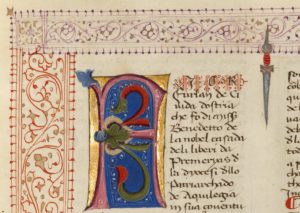 FIOR
Furlan de Ci
uida dostria
che fo di miss
Benedetto de
la nobel casada
deli liberi da
Premeryas d
la dyocesi dllo
Patriarchado
de Aquilegia
in sua çouentu